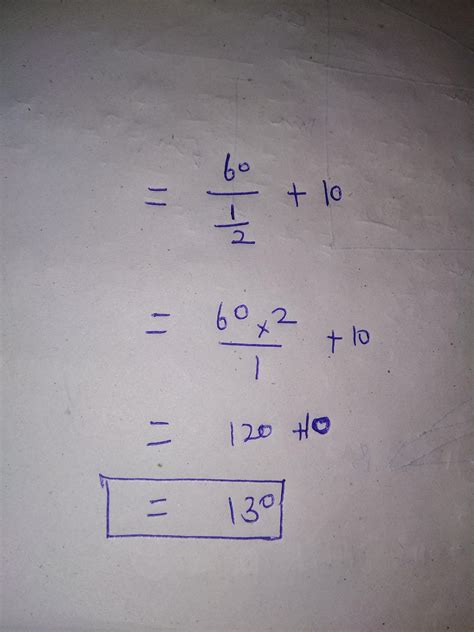 = 60/(1/2) + 10
= 60 x 2/1 + 10
= 120 + 10
= 130